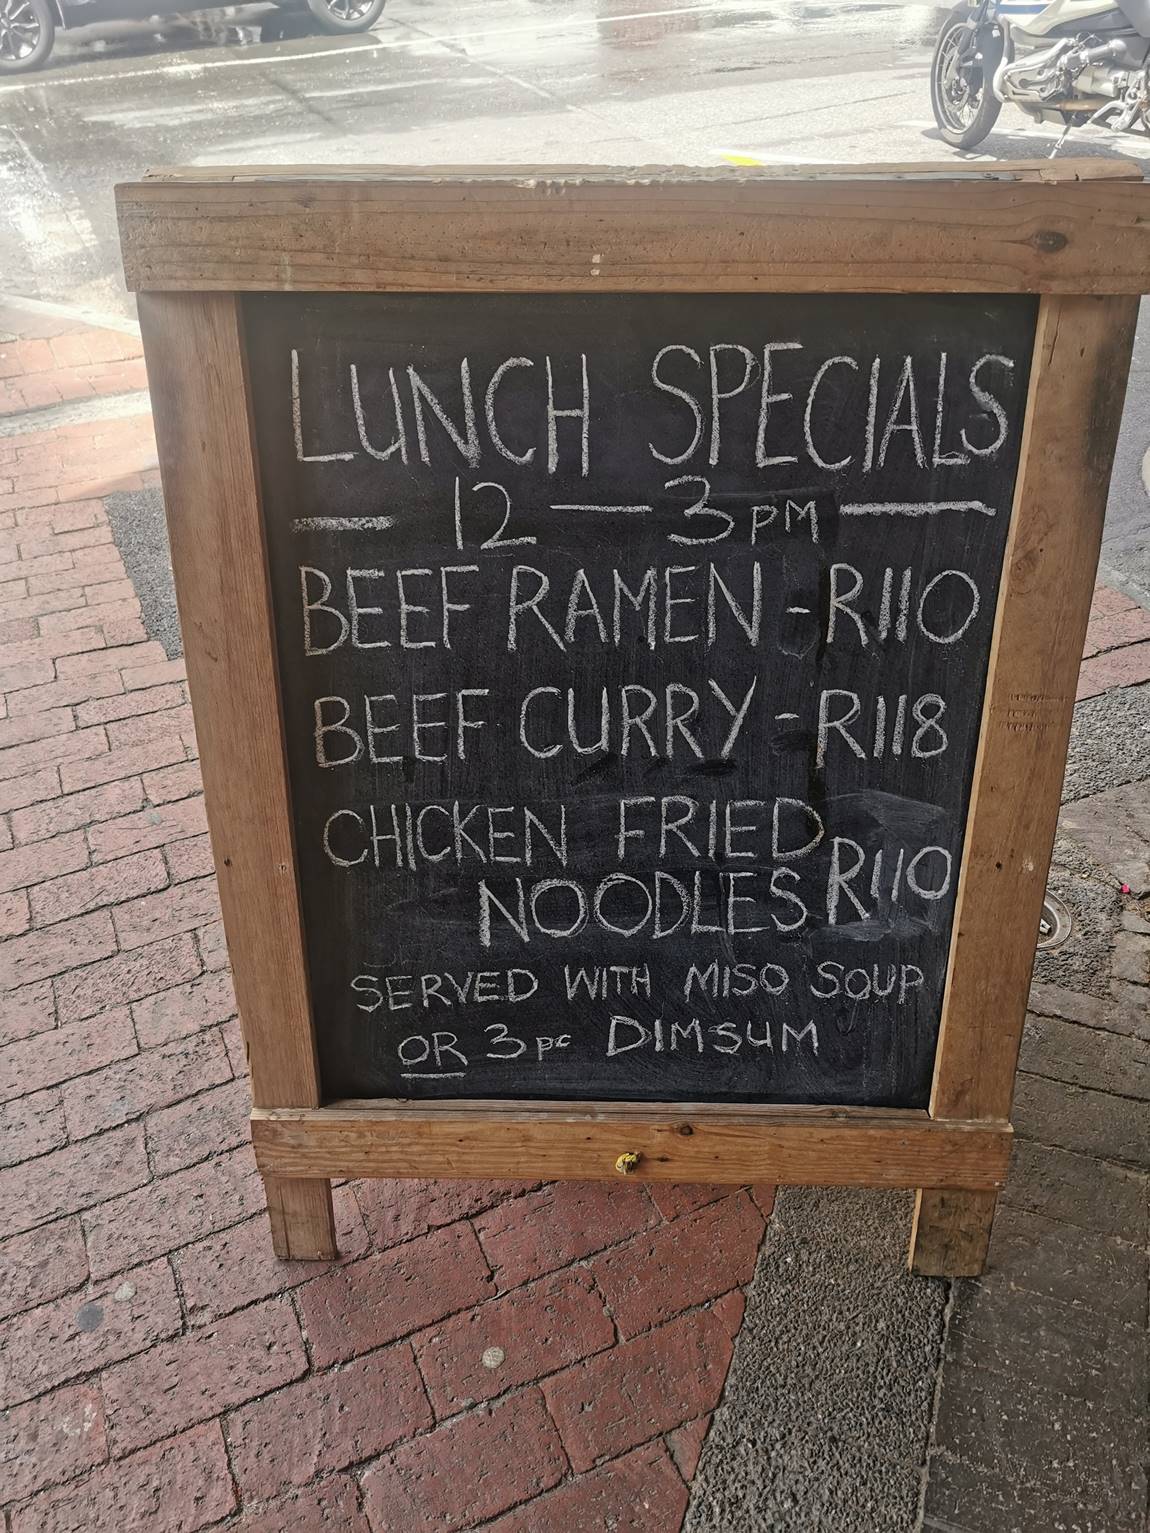 LUNCH SPECIALS
— 12 — 3 PM —
BEEF RAMEN - R110
BEEF CURRY - R118
CHICKEN FRIED
NOODLES R110
SERVED WITH MISO SOUP
OR 3 pc DIMSUM